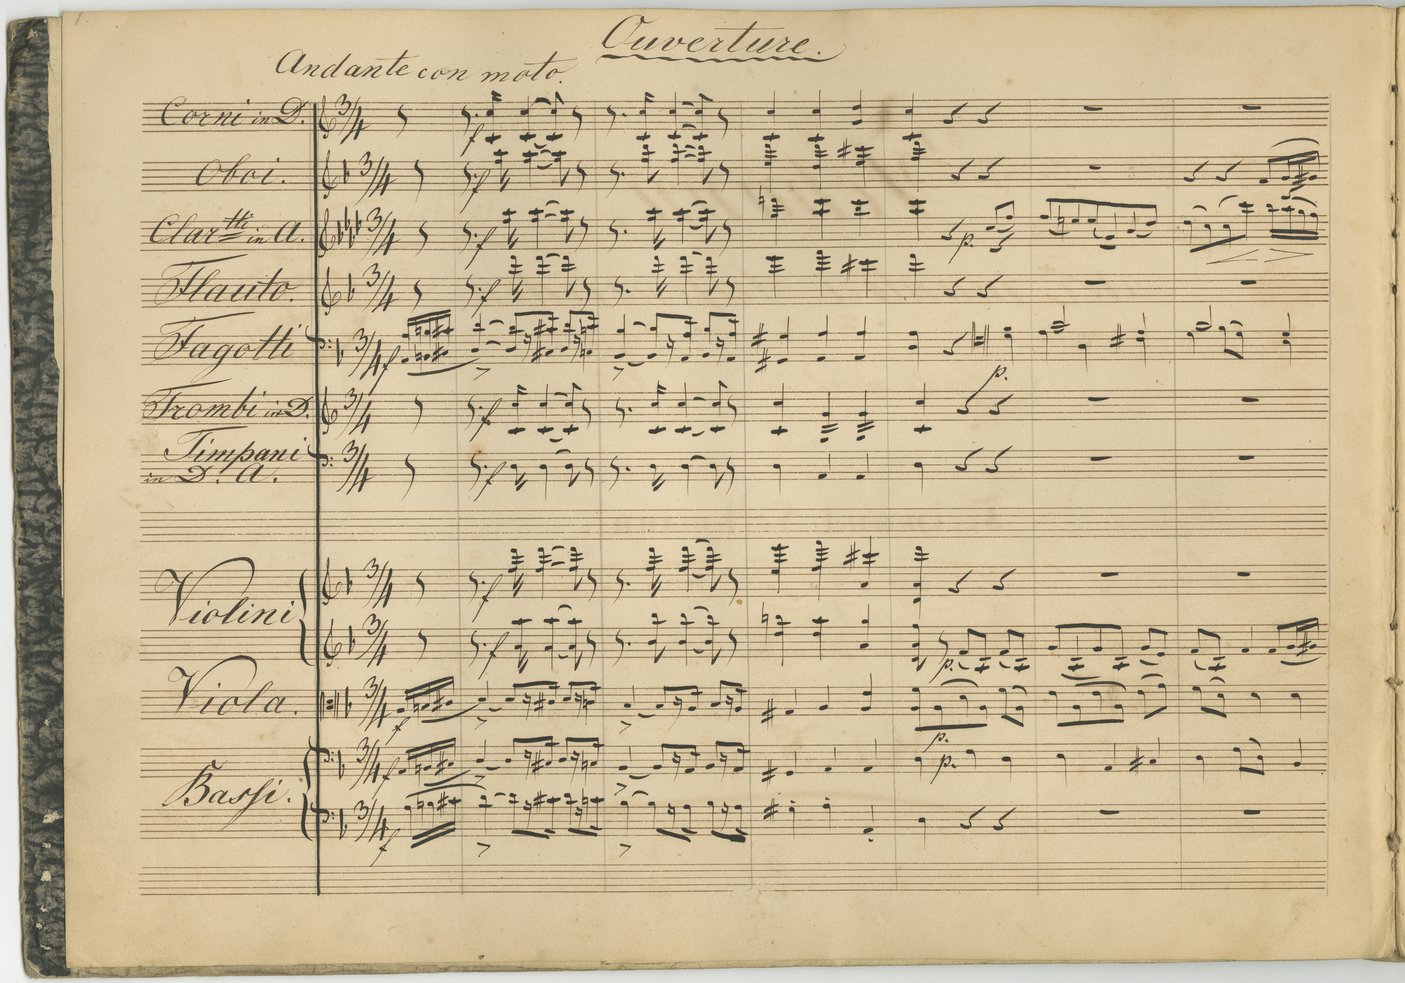 Ouverture.
Andante con moto.
Corni in D.
Oboi.
Clar.tti in A.
Flauto.
Fagotti
Trombi in D.
Timpani
in D. A.
Violini
Viola.
Bassi.
3/4
f
p.